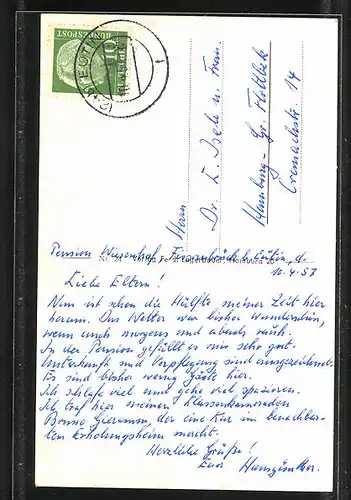 10
BUNDESPOST
Herrn
Dr. L. Isele u. Frau
Hamburg - Gr. Flottbek
14
Pension Wiesenhof, Eutin, d.
10.4.57
Liebe Eltern!
Nun ist schon die Hälfte meiner Zeit hier
herum. Das Wetter war bisher wunderschön,
wenn auch morgens und abends rauh.
In der Pension gefällt es mir sehr gut.
Unterkunft und Verpflegung sind ausgezeichnet.
Es sind bisher wenig Gäste hier.
Ich schlafe viel und gehe viel spazieren.
Ich traf hier meinen Klassenkameraden
Bruno, der eine Kur im benachbar-
ten Erholungsheim macht.
Herzliche Grüße!
Euer Hansgünther.